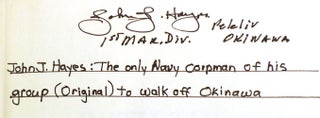 John J. Hayes Peleliv
1st MAR. Div. OKINAWA
John J. Hayes: The only Navy Corpman of his
group (Original) to walk off Okinawa